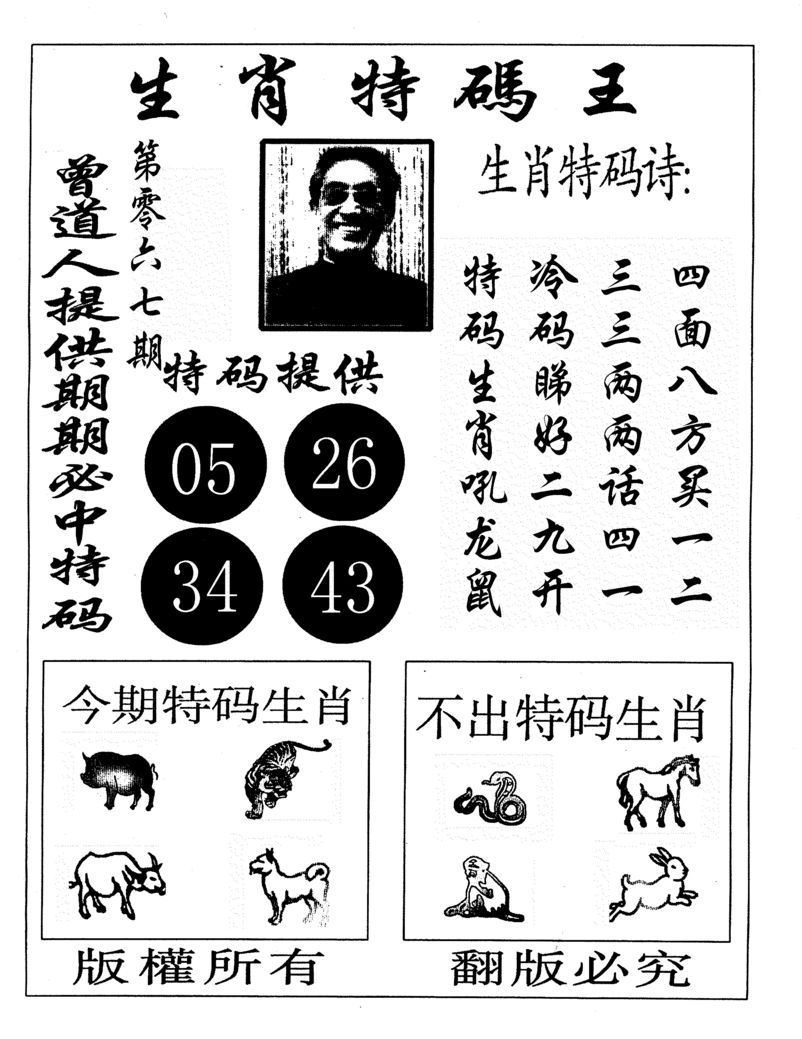 生肖特碼王
第零六七期
曾道人提供期期必中特码
生肖特码诗:
四面八方买一二
三三两两话四一
冷码睇好二九开
特码生肖吼龙鼠
特码提供
05 26
34 43
今期特码生肖
不出特码生肖
版權所有
翻版必究